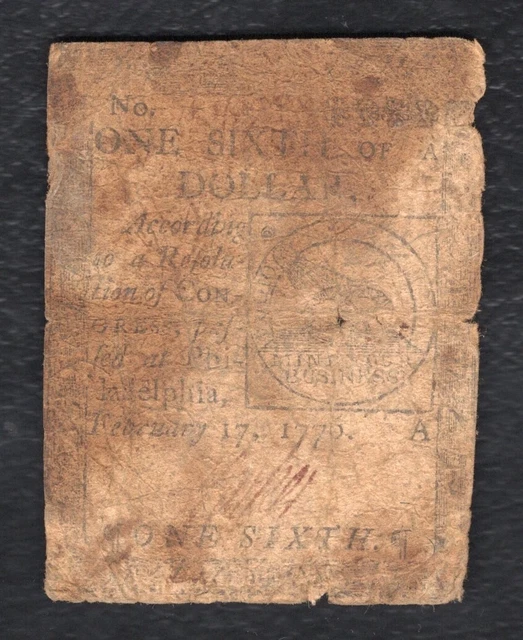 No.
ONE SIXTH OF A
DOLLAR,
According
to a Resolu-
tion of CON-
GRESS paſ-
ſed at Phi-
ladelphia,
February 17, 1776. A
MIND YOUR
BUSINESS
¶ ONE SIXTH. ¶